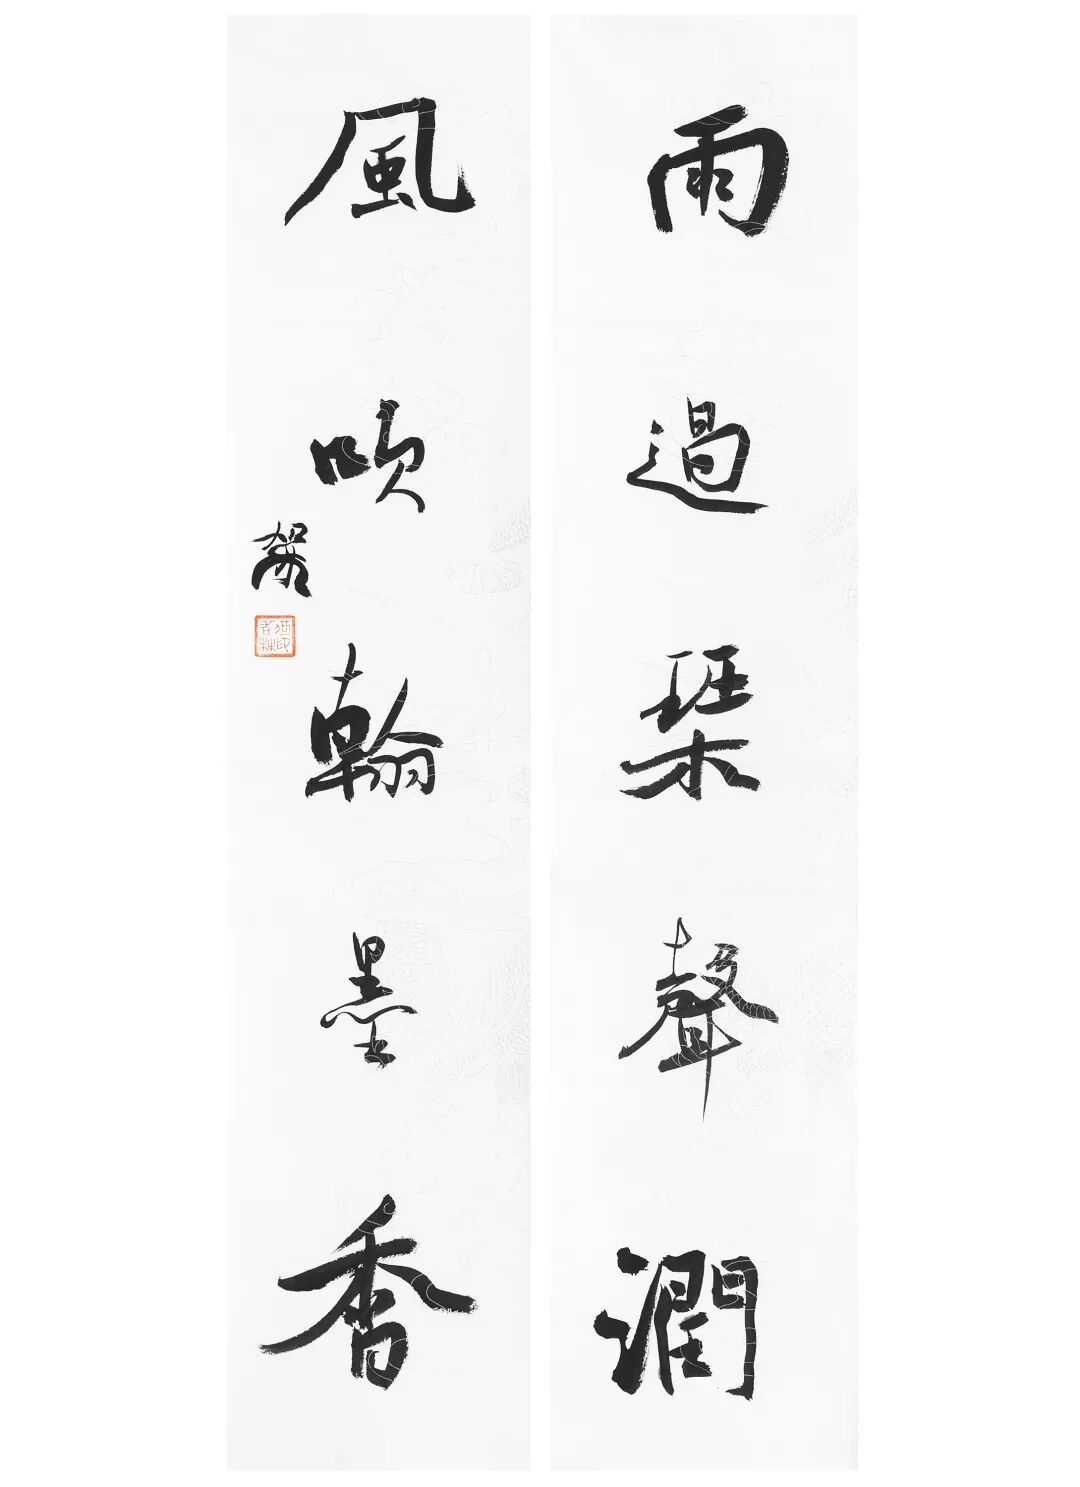 雨過琹聲潤
風吹翰墨香